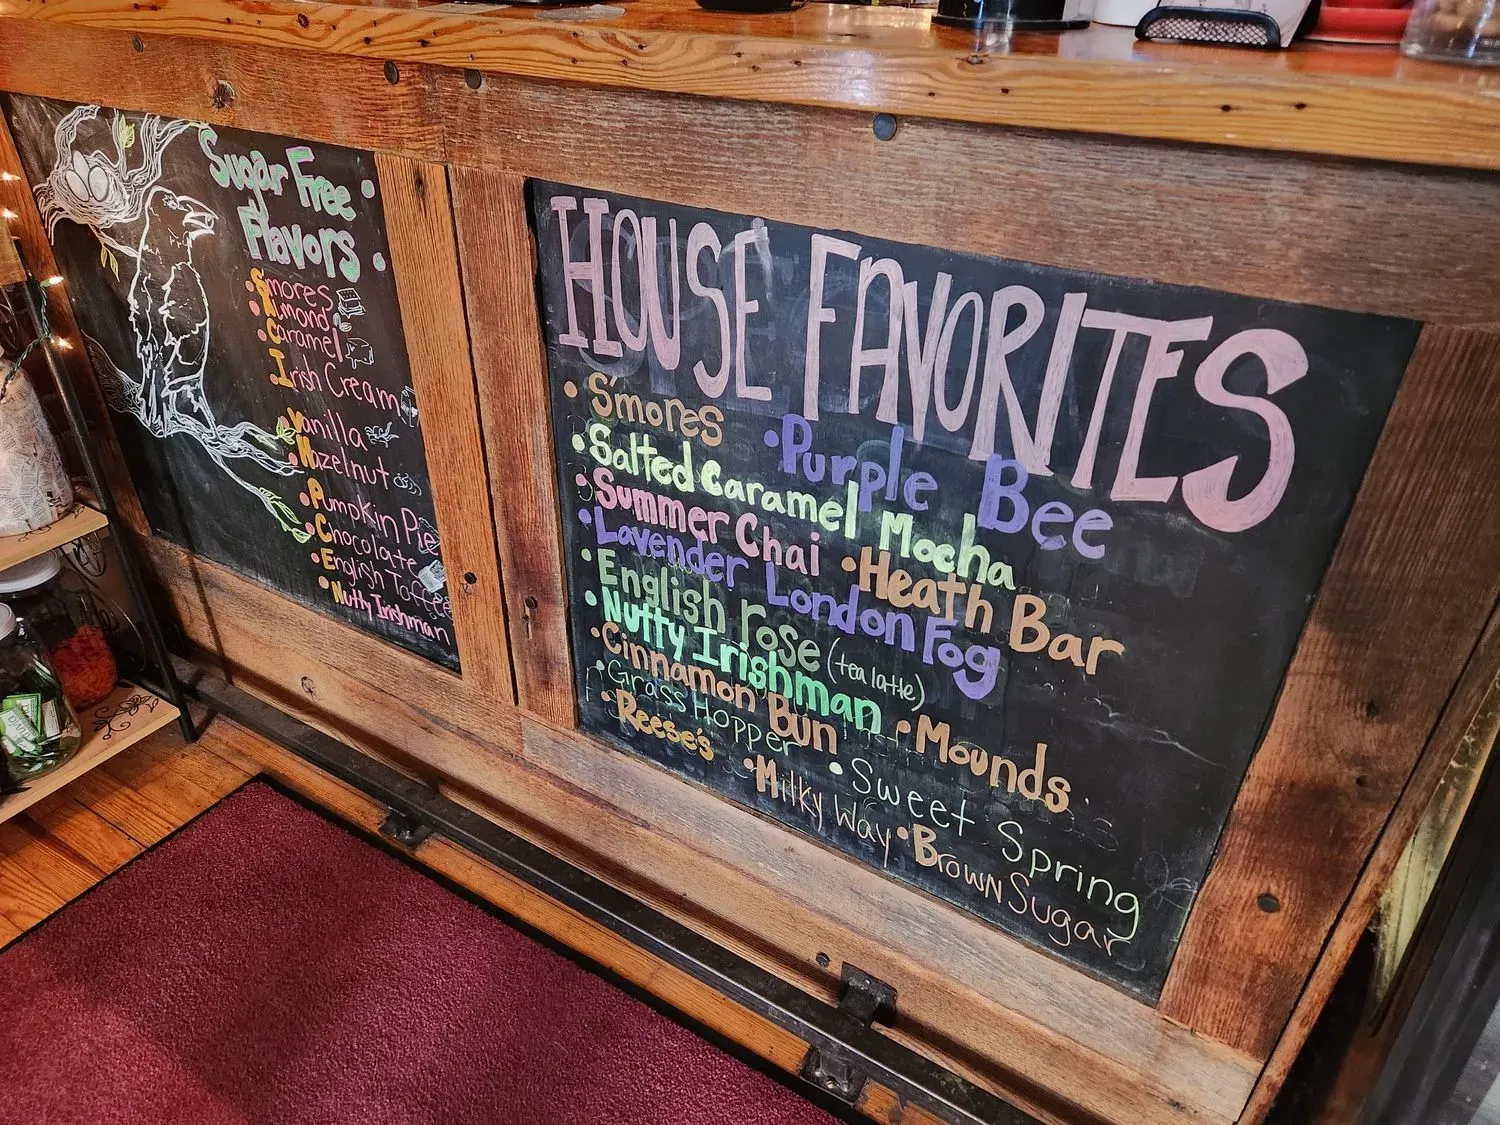 Sugar Free
Flavors
• Smores
• Almond
• Caramel
• Irish Cream
• Vanilla
• Hazelnut
• Pumpkin Pie
• Chocolate
• English Toffee
• Nutty Irishman
HOUSE FAVORITES
• S'mores
• Purple Bee
• Salted Caramel Mocha
• Summer Chai
• Heath Bar
• Lavender London Fog
• English rose (tea latte)
• Nutty Irishman
• Mounds
• Cinnamon Bun
• Grass Hopper
• Sweet Spring
• Reese's
• Milky Way
• Brown Sugar